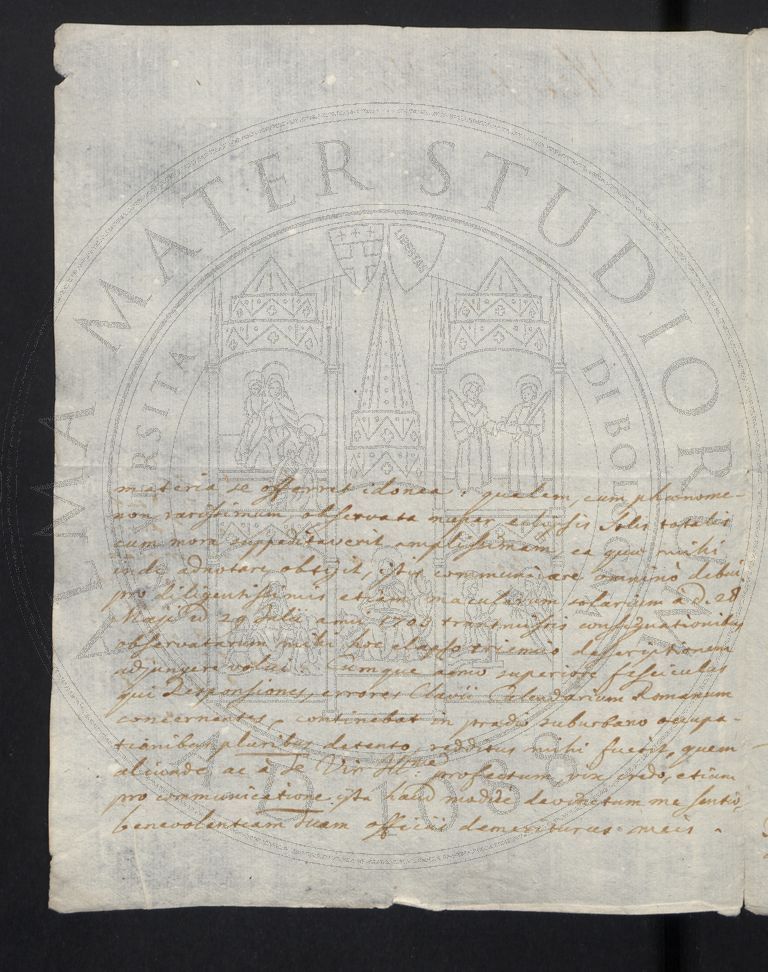 ALMA MATER STUDIORUM
UNIVERSITA DI BOLOGNA
LIBERTAS
A.D. 1088
materia se offerret idonea: qualem, cum phænome-
non rarissimum observata nuper eclypsis Solis totalis
cum mora suppeditaverit amplissimam, ea quæ mihi
inde adnotare obtigit, istis communicare omnino debui,
pro diligentissimis etiam macularum solarium a d. 28
Maji ad 29 Julii anni 1703 transmissis consignationibus
observatarum mihi hoc elapso triennio descriptionem
adjungere volui. Cumque anno superiore fasciculus
qui Responsiones, errores Clavii Calendarium Romanum
concernentes, continebat in prædio suburbano occupa-
tionibus pluribus detento, redditus mihi fuerit, quem
aliunde ac à Te Vir profectum vix credo, etiam
pro communicatione ista haud modice devinctum me sentio,
benevolentiam Tuam officiis demeriturus meis.